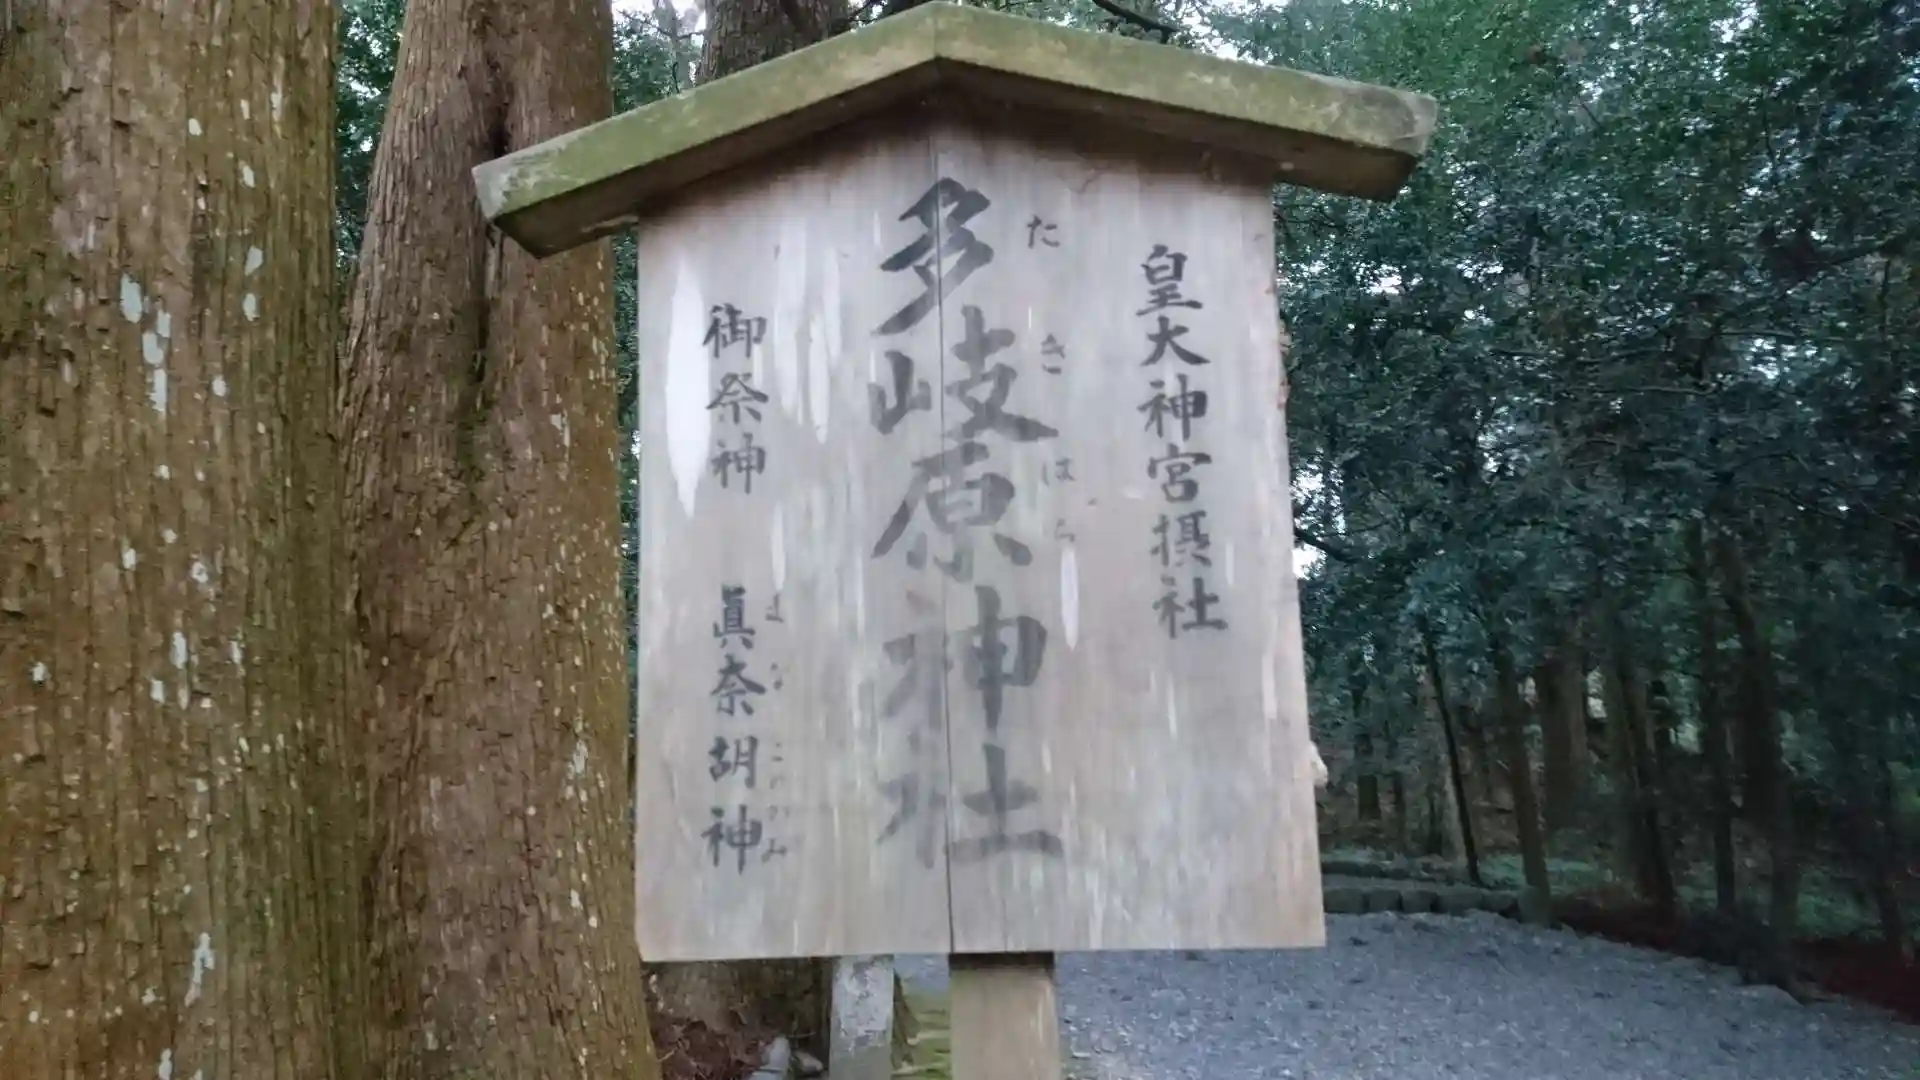 皇大神宮摂社
多岐原神社
たきはら
御祭神 眞奈胡神
まなこのかみ